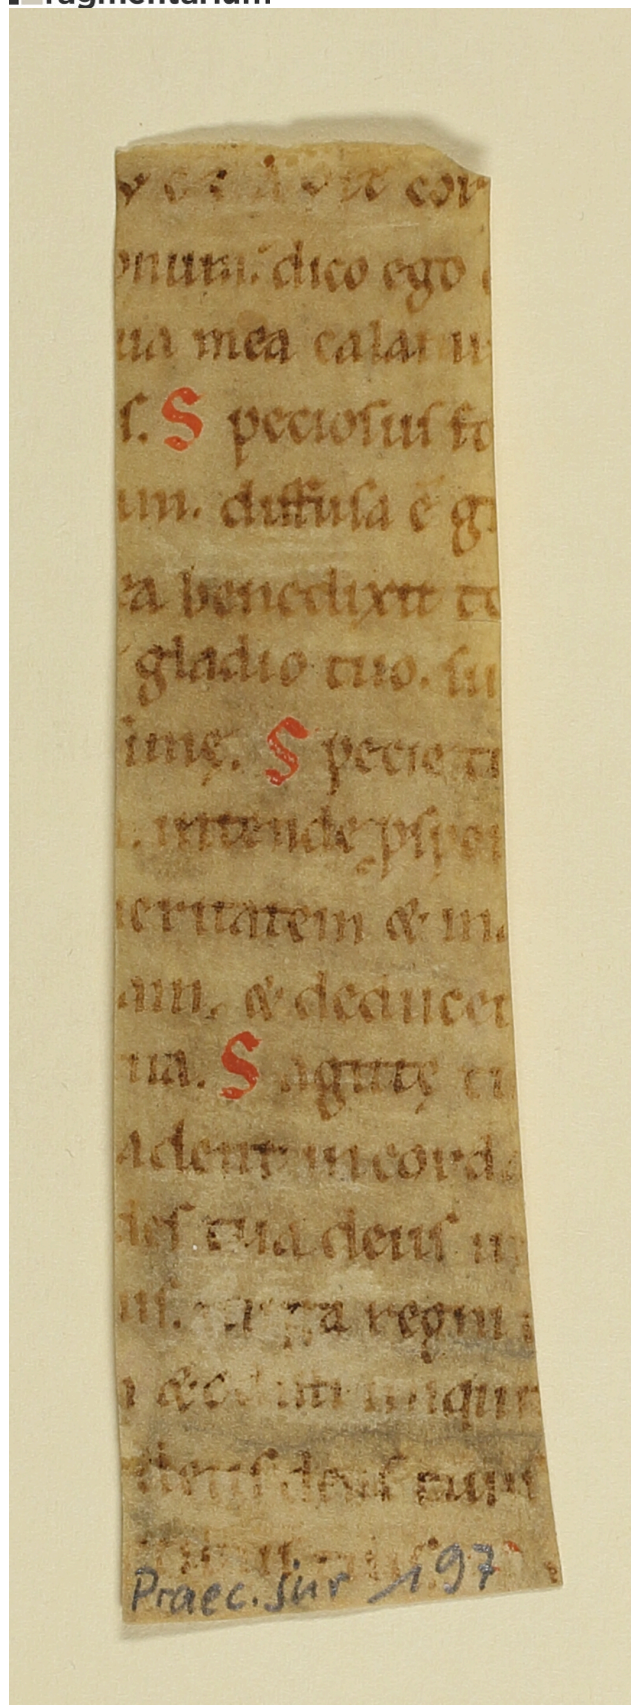 cor
onum. dico ego
ua mea calamu
s. S peciosus fo
um. diffusa ē gr
ea benedixit te
gladio tuo. su
imę. S pecie tu
. intende ꝓspꝰ
eritatem & ma
am. & deducet
ua. S agittę tu
adent in corda
des tua deus in
us. uirga regni
& odisti iniquit
deus deus tuus
Praec. sur 197